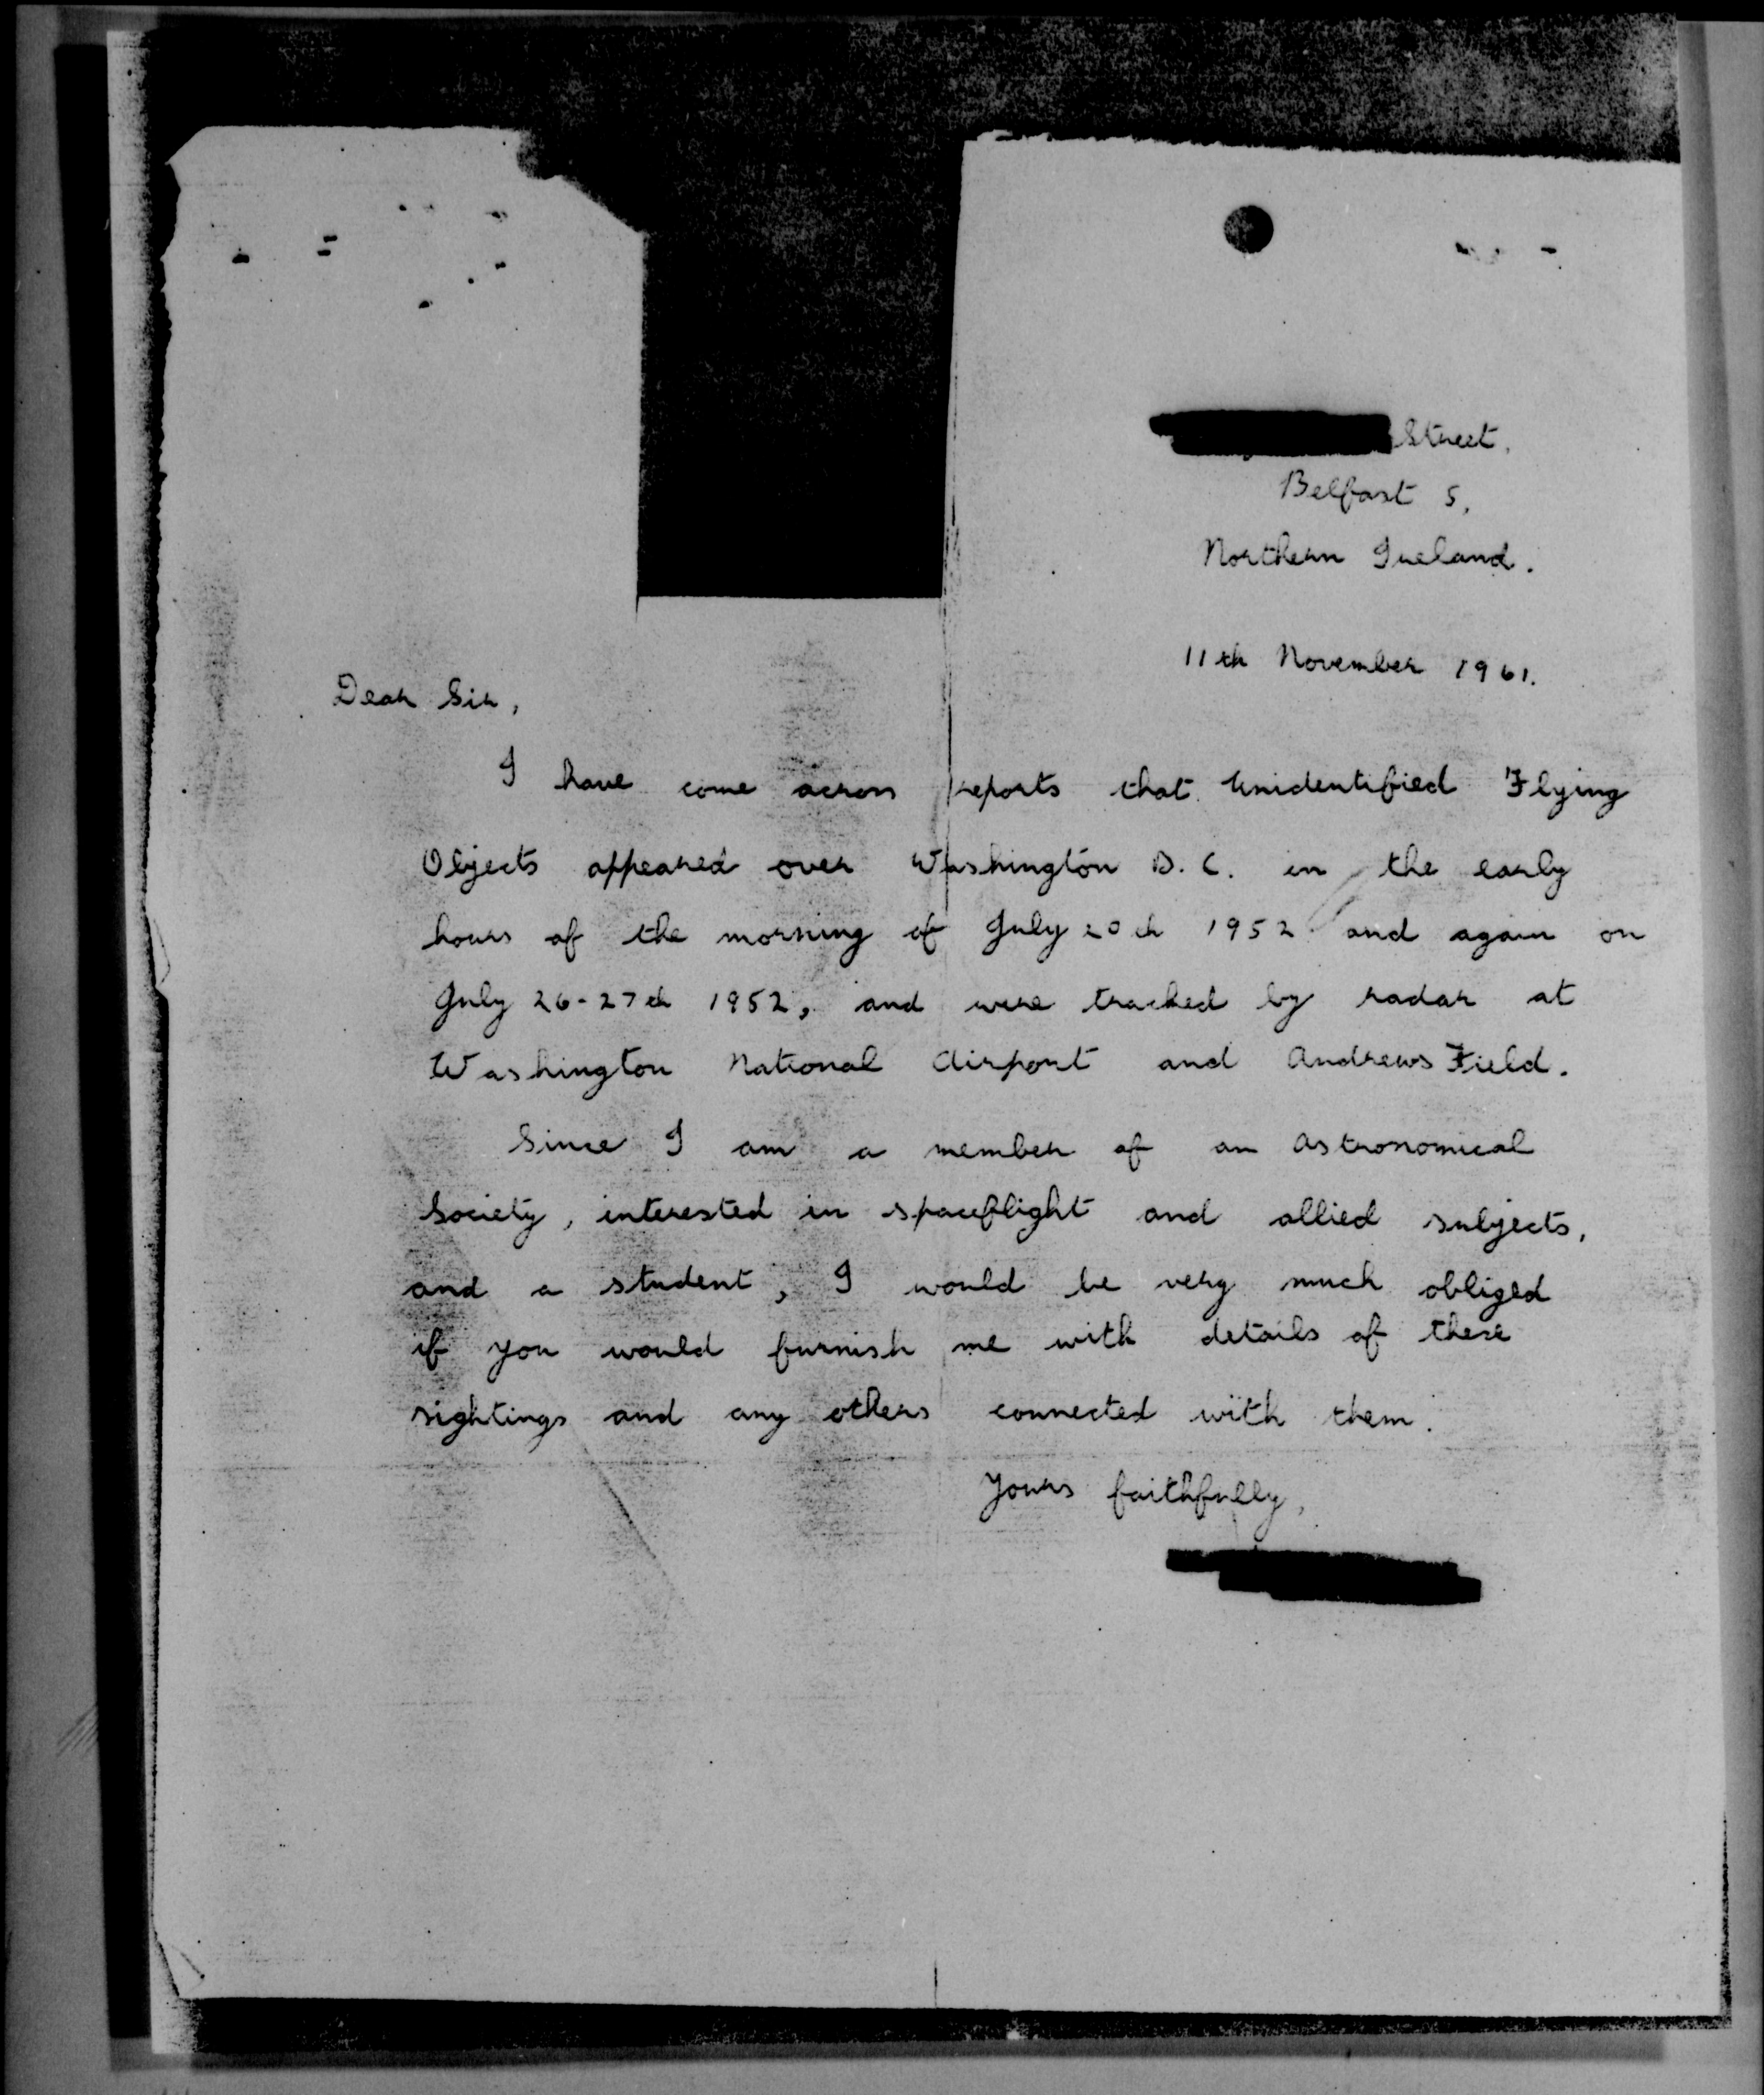 Street,
Belfast 5,
Northern Ireland.
11th November 1961.
Dear Sir,
I have come across reports that Unidentified Flying
Objects appeared over Washington D.C. in the early
hours of the morning of July 20th 1952 and again on
July 26-27th 1952, and were tracked by radar at
Washington National Airport and Andrews Field.
Since I am a member of an Astronomical
Society, interested in spaceflight and allied subjects,
and a student, I would be very much obliged
if you would furnish me with details of these
sightings and any others connected with them.
Yours faithfully,